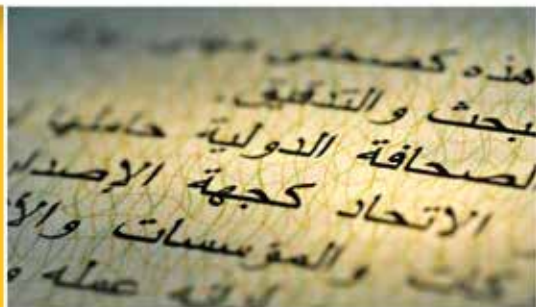 هذه كصحفي
بحث والتدقيق.
لصحافة الدولية حاملها
الاتحاد كجهة الإصدار
والمؤسسات والأ
عمله